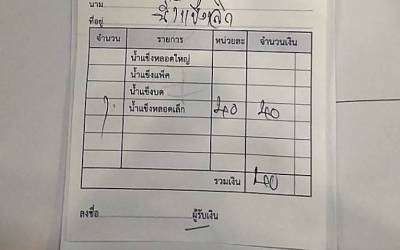 นาม น้ำแข็งหลอด
ที่อยู่
จำนวน รายการ หน่วยละ จำนวนเงิน
น้ำแข็งหลอดใหญ่
น้ำแข็งแพ็ค
น้ำแข็งบด
1 น้ำแข็งหลอดเล็ก 40 40
รวมเงิน 40
ลงชื่อ ผู้รับเงิน